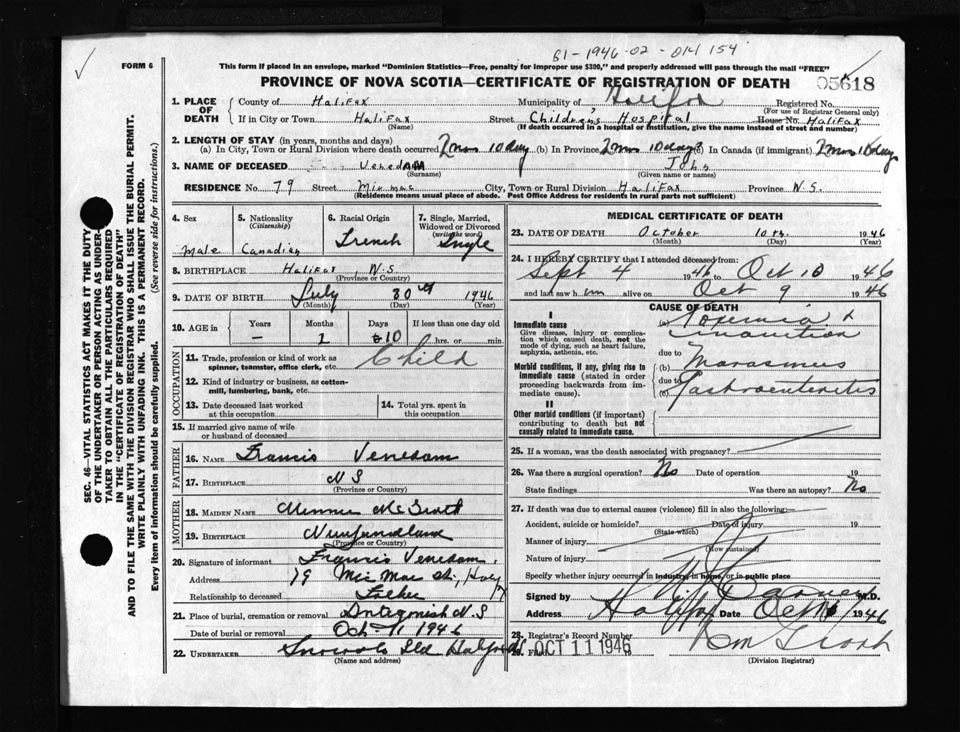 B1-1946-02-014154
FORM 6
This form if placed in an envelope, marked "Dominion Statistics—Free, penalty for improper use $300," and properly addressed will pass through the mail "FREE"
PROVINCE OF NOVA SCOTIA—CERTIFICATE OF REGISTRATION OF DEATH
05618
1. PLACE OF DEATH
County of Halifax Municipality of Halifax Registered No.
(For use of Registrar General only)
If in City or Town Halifax Street Children's Hospital House No. Halifax
(Name) (If death occurred in a hospital or institution, give the name instead of street and number)
2. LENGTH OF STAY (in years, months and days)
(a) In City, Town or Rural Division where death occurred 2 mos 10 days (b) In Province 2 mos 10 days (c) In Canada (if immigrant) 2 mos 10 days
3. NAME OF DECEASED Venedam John
(Surname) (Given name or names)
RESIDENCE No. 79 Street Micmac City, Town or Rural Division Halifax Province N.S.
(Residence means usual place of abode. Post Office Address for residents in rural parts not sufficient)
4. Sex
male
5. Nationality
(Citizenship)
Canadian
6. Racial Origin
French
7. Single, Married, Widowed or Divorced
(write the word)
Single
8. BIRTHPLACE Halifax, N.S.
(Province or Country)
9. DATE OF BIRTH July 30th 1946
(Month) (Day) (Year)
10. AGE in
Years Months Days If less than one day old
— 2 10 hrs. or min.
OCCUPATION
11. Trade, profession or kind of work as spinner, teamster, office clerk, etc. Child
12. Kind of industry or business, as cotton-mill, lumbering, bank, etc.
13. Date deceased last worked at this occupation
14. Total yrs. spent in this occupation
15. If married give name of wife or husband of deceased
FATHER
16. NAME Francis Venedam
17. BIRTHPLACE N S
(Province or Country)
MOTHER
18. MAIDEN NAME Minnie
19. BIRTHPLACE Newfoundland
(Province or Country)
20. Signature of informant Francis Venedam
Address 79 Mic Mac St., Halifax
Relationship to deceased Father
21. Place of burial, cremation or removal Antigonish N.S
Date of burial or removal Oct 11 1946
22. UNDERTAKER Snow & Co Ltd Halifax
(Name and address)
MEDICAL CERTIFICATE OF DEATH
23. DATE OF DEATH October 10th. 1946
(Month) (Day) (Year)
24. I HEREBY CERTIFY that I attended deceased from:
Sept 4 1946 to Oct 10 1946
and last saw him alive on Oct 9 1946
CAUSE OF DEATH
I
Immediate cause
Give disease, injury or complication which caused death, not the mode of dying, such as heart failure, asphyxia, asthenia, etc.
(a) Toxemia & inanition
due to
Morbid conditions, if any, giving rise to immediate cause (stated in order proceeding backwards from immediate cause).
(b) Marasmus
due to
(c) Gastroenteritis
II
Other morbid conditions (if important) contributing to death but not causally related to immediate cause.
25. If a woman, was the death associated with pregnancy?
26. Was there a surgical operation? No Date of operation 19
State findings Was there an autopsy? No
27. If death was due to external causes (violence) fill in also the following:—
Accident, suicide or homicide? Date of injury 19
(State which)
Manner of injury
(How sustained)
Nature of injury
Specify whether injury occurred in industry, in home, or in public place
Signed by M.D.
Address Halifax Date Oct 1946
28. Registrar's Record Number
29. Filed OCT 11 1946
(Division Registrar)
SEC. 46—VITAL STATISTICS ACT MAKES IT THE DUTY
OF THE UNDERTAKER OR PERSON ACTING AS UNDER-
TAKER TO OBTAIN ALL THE PARTICULARS REQUIRED
IN THE "CERTIFICATE OF REGISTRATION OF DEATH"
AND TO FILE THE SAME WITH THE DIVISION REGISTRAR WHO SHALL ISSUE THE BURIAL PERMIT.
WRITE PLAINLY WITH UNFADING INK. THIS IS A PERMANENT RECORD.
Every item of information should be carefully supplied. (See reverse side for instructions.)